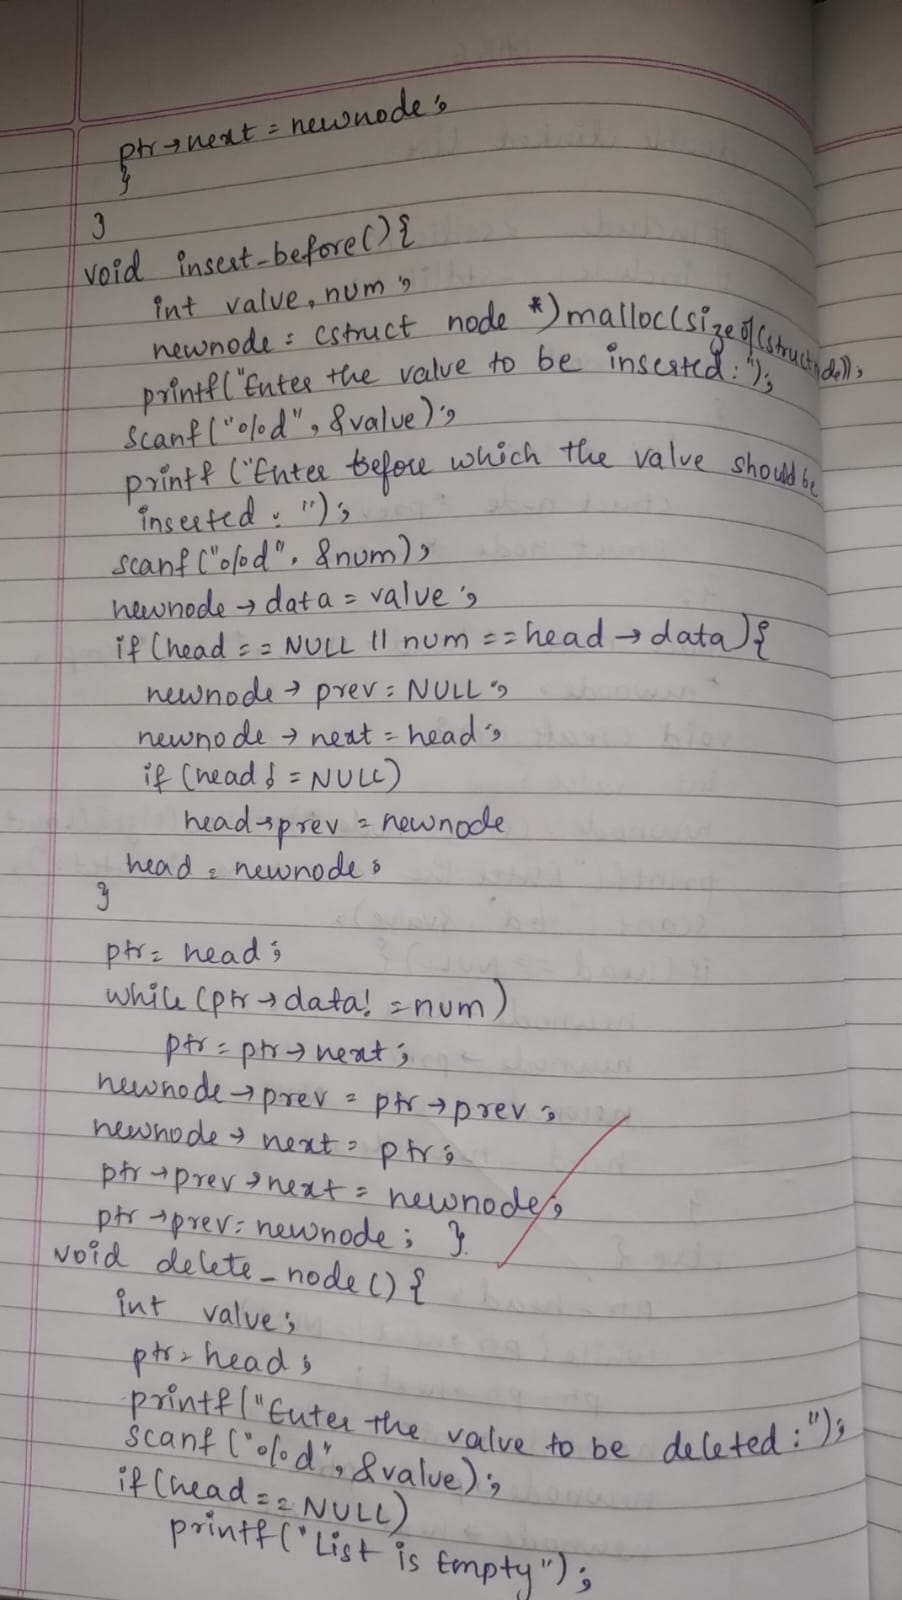 ptr→next = newnode;
}
}
void insert_before(){
int value, num;
newnode = (struct node *)malloc(sizeof(struct node));
printf("Enter the value to be inserted:");
scanf("%d", &value);
printf("Enter before which the value should be
inserted: ");
scanf("%d", &num);
newnode→data = value;
if(head == NULL || num == head→data){
newnode→prev = NULL;
newnode→next = head;
if(head != NULL)
head→prev = newnode
head = newnode;
}
ptr = head;
while(ptr→data! = num)
ptr = ptr→next;
newnode→prev = ptr→prev;
newnode→next = ptr;
ptr→prev→next = newnode;
ptr→prev = newnode; }
void delete_node(){
int value;
ptr = head;
printf("Enter the value to be deleted:");
scanf("%d", &value);
if(head == NULL)
printf("List is Empty");